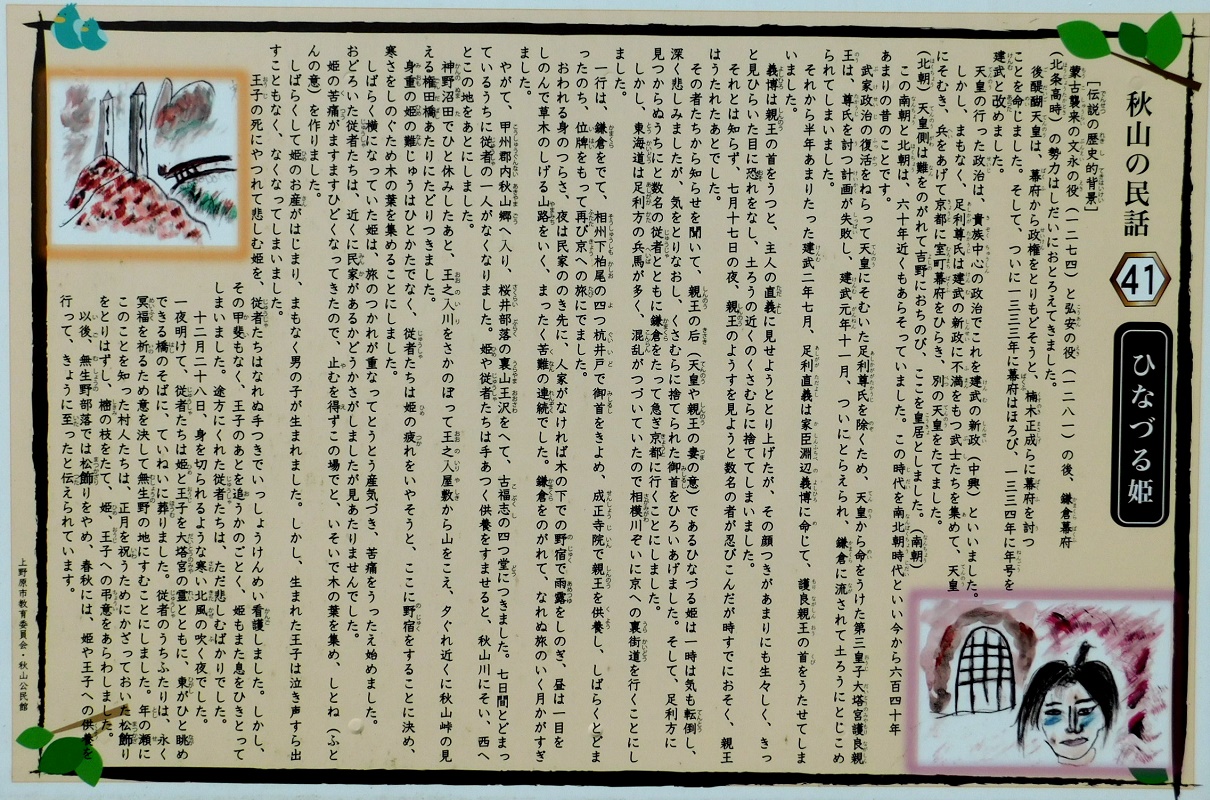 秋山の民話
41
ひなづる姫
[伝説の歴史的背景]
蒙古襲来の文永の役(一二七四)と弘安の役(一二八一)の後、鎌倉幕府
(北条高時)の勢力はしだいにおとろえてきました。
後醍醐天皇は、幕府から政権をとりもどそうと、楠木正成らに幕府を討つ
ことを命じました。そして、ついに一三三三年に幕府はほろび、一三三四年に年号を
建武と改めました。
天皇の行った政治は、貴族中心の政治でこれを建武の新政(中興)といいました。
しかし、まもなく、足利尊氏は建武の新政に不満をもつ武士たちを集めて、天皇
にそむき、兵をあげて京都に室町幕府をひらき、別の天皇をたてました。
(北朝)天皇側は難をのがれて吉野におちのび、ここを皇居としました。(南朝)
この南朝と北朝は、六十年近くもあらそっていました。この時代を南北朝時代といい今から六百四十年
あまりの昔のことです。
武家政治の復活をねらって天皇にそむいた足利尊氏を除くため、天皇から命をうけた第三皇子大塔宮護良親
王は、尊氏を討つ計画が失敗し、建武元年十一月、ついにとらえられ、鎌倉に流されて土ろうにとじこめ
られてしまいました。
それから半年あまりたった建武二年七月、足利直義は家臣淵辺義博に命じて、護良親王の首をうたせてしま
いました。
義博は親王の首をうつと、主人の直義に見せようととり上げたが、その顔つきがあまりにも生々しく、きっ
と見ひらいた目に恐れをなし、土ろうの近くのくさむらに捨ててしまいました。
それとは知らず、七月十七日の夜、親王のようすを見ようと数名の者が忍びこんだが時すでにおそく、親王
はうたれたあとでした。
その者たちから知らせを聞いて、親王の后(天皇や親王の妻の意)であるひなづる姫は一時は気も転倒し、
深く悲しみましたが、気をとりなおし、くさむらに捨てられた御首をひろいあげました。そして、足利方に
見つからぬうちにと数名の従者とともに鎌倉をたって急ぎ京都に行くことにしました。
しかし、東海道は足利方の兵馬が多く、混乱がつづいていたので相模川ぞいに京への裏街道を行くことにし
ました。
一行は、鎌倉をでて、相州下柏尾の四つ杭井戸で御首をきよめ、成正寺院で親王を供養し、しばらくとどま
ったのち、位牌をもって再び京への旅にでました。
おわれる身のつらさ、夜は民家ののき先に、人家がなければ木の下での野宿で雨露をしのぎ、昼は一目を
しのんで草木のしげる山路をいく、まったく苦難の連続でした。鎌倉をのがれて、なれぬ旅のいく月かがすぎ
ました。
やがて、甲州郡内秋山郷へ入り、桜井部落の裏山王沢をへて、古福志の四つ堂につきました。七日間とどまっ
ているうちに従者の一人がなくなりました。姫や従者たちは手あつく供養をすませると、秋山川にそい、西へ
とこの地をあとにしました。
神野沼田でひと休みしたあと、王之入川をさかのぼって王之入屋敷から山をこえ、夕ぐれ近くに秋山峠の見
える権田橋あたりにたどりつきました。
身重の姫の難じゅうはひとかたでなく、従者たちは姫の疲れをいやそうと、ここに野宿をすることに決め、
寒さをしのぐため木の葉を集めることにしました。
しばらく横になっていた姫は、旅のつかれが重なってとうとう産気づき、苦痛をうったえ始めました。
おどろいた従者たちは、近くに民家があるかどうかさがしましたが見あたりませんでした。
姫の苦痛がますますひどくなってきたので、止むを得ずこの場でと、いそいで木の葉を集め、しとね(ふと
んの意)を作りました。
しばらくして姫のお産がはじまり、まもなく男の子が生まれました。しかし、生まれた王子は泣き声すら出
すこともなく、なくなってしまいました。
王子の死にやつれて悲しむ姫を、従者たちはなれぬ手つきでいっしょうけんめい看護しました。しかし、
その甲斐もなく、王子のあとを追うかのごとく、姫もまた息をひきとって
しまいました。途方にくれた従者たちは、ただ悲しむばかりでした。
十二月二十八日、身を切られるような寒い北風の吹く夜でした。
一夜明けて、従者たちは姫と王子を大塔宮の霊とともに、東がひと眺め
できる橋のそばに、ていねいに葬りました。従者のうちふたりは、永く
冥福を祈るため意を決して無生野の地にすむことにしました。年の瀬に
このことを知った村人たちは、正月を祝うためにかざっておいた松飾り
をとりはずし、樒の枝をたて、姫、王子への弔意をあらわしました。
以後、無生野部落では松飾りをやめ、春秋には、姫や王子への供養を
行って、きょうに至ったと伝えられています。
上野原市教育委員会・秋山公民館